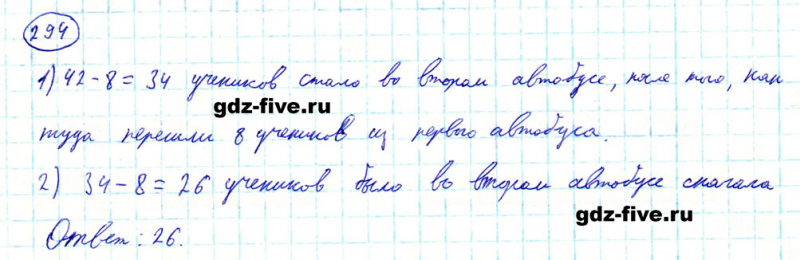 294
1) 42-8=34 учеников стало во втором автобусе, после того, как
gdz-five.ru
туда перешли 8 учеников из первого автобуса.
2) 34-8=26 учеников было во втором автобусе сначала
gdz-five.ru
Ответ: 26.